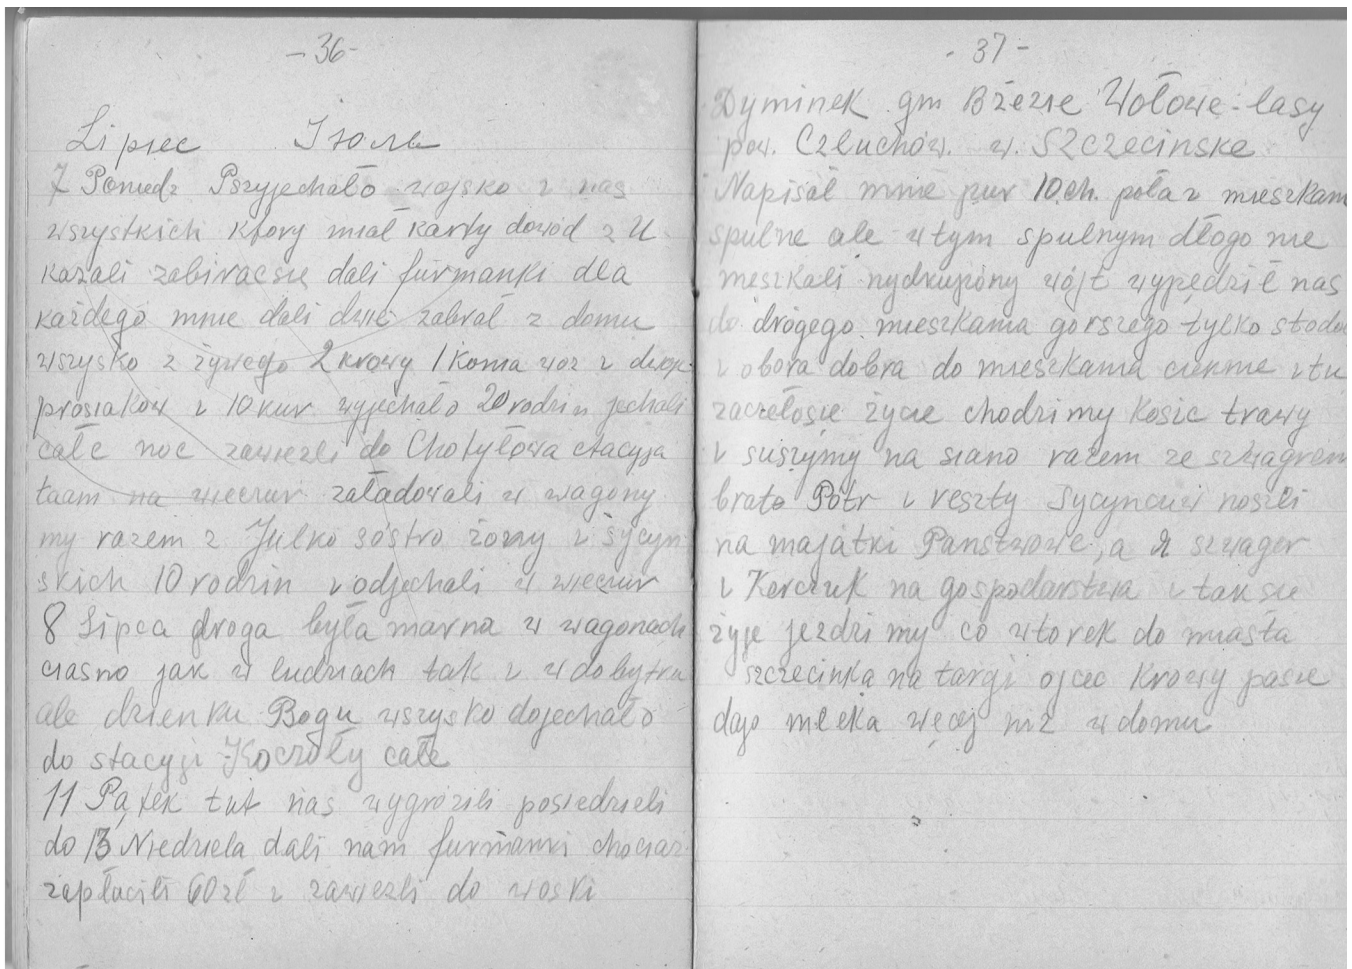 - 36 -
Lipiec Июль
7 Poniedz Pszyjechało wojsko i nas
wszystkich ktory miał karty dowód z U
kazali zabiracsię dali furmanki dla
każdego mnie dali dwie zabrał z domu
wszysko z żywego 2 krowy 1 konia woz i dwoje
prosiakow i 10 kur wyjechało 20 rodzin jechali
całe noc zawiezli do Chotyłowa stacyja
taam na wieczur załadowali w wagony
my razem z Julko sostro żony i Sycyn
skich 10 rodzin i odjechali w wieczur
8 Lipca droga była marna w wagonach
ciasno jak w ludziach tak i w dobytku
ale dzienku Bogu wszysko dojechało
do stacyji Koczały całe
11 Pątek tut nas wygrozili posiedzieli
do 13 Niedziela dali nam furmanki chociaz
zapłacili 60 zł i zawiezli do wioski
- 37 -
Dyminek gm Bżezie Wołowe-lasy
pow. Człuchów. w. Szczecinske
Napisał mnie pur 10.ch. pola i mieszkam
spulne ale w tym spulnym dłogo nie
meszkali wójt wypędził nas
do drogego mieszkania gorszego tylko stodoł
i obora dobra do mieszkania ciekme i tu
zaczełosie życie chodzimy kosic trawy
i suszymy na siano razem ze szwagrem
brata Potr i reszty Sycyncuw noszli
na majątki Panstwowe, a Я szwager
i Korczuk na gospodarstwa i tak sie
żyje jezdzimy co wtorek do miasta
szczecinka na targi ojcec krowy pasie
dajo mleka węcej niż w domu